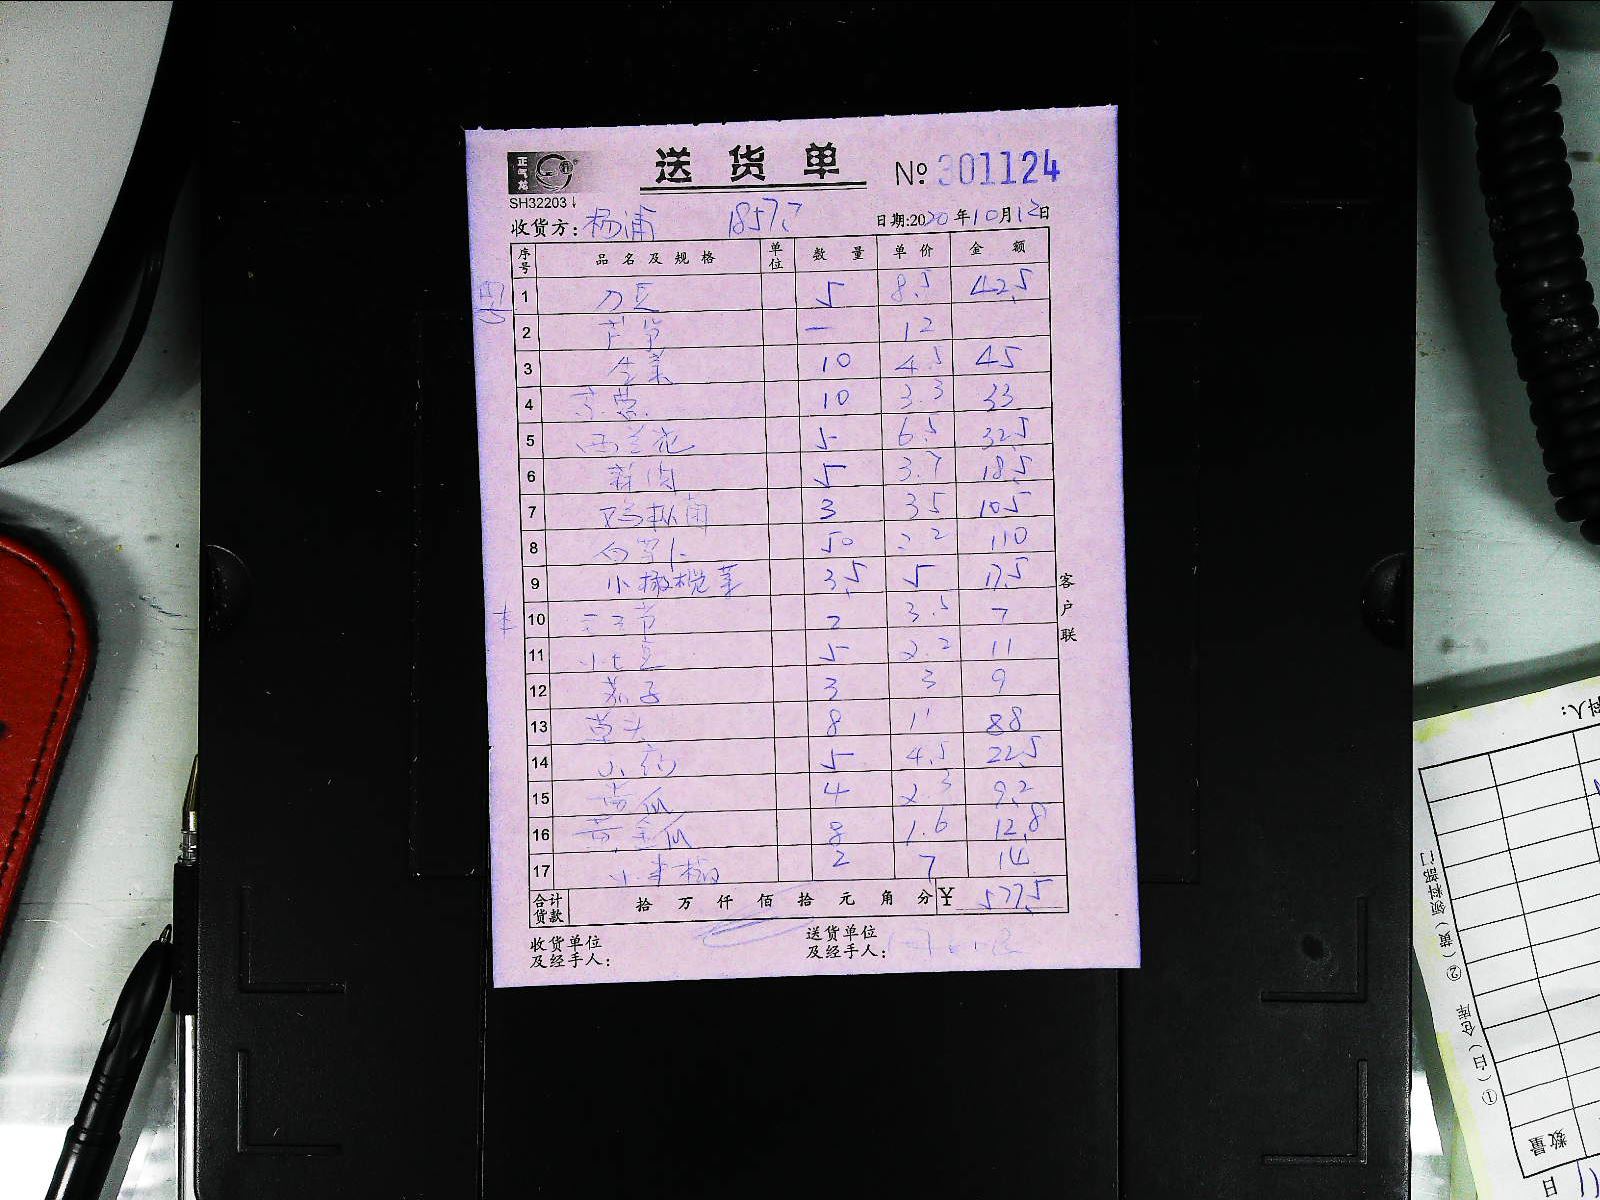 正气龙
送货单 № 301124
SH32203
收货方: 杨浦 1857? 日期:2020年10月12日
序号 品名及规格 单位 数量 单价 金额
1 刀豆 5 8.5 42.5
2 芦笋 一 12
3 生菜 10 4.5 45
4 京葱 10 3.3 33
5 西兰花 5 6.5 32.5
6 5 3.7 18.5
7 鸡枞菌 3 35 105
8 白萝卜 50 2.2 110
9 小橄榄菜 3.5 5 17.5
10 2 3.5 7
11 小土豆 5 2.2 11
12 茄子 3 3 9
13 草头 8 11 88
14 山药 5 4.5 22.5
15 黄瓜 4 2.3 9.2
16 黄金瓜 8 1.6 12.8
17 小米椒 2 7 14
合计货款 拾万仟佰拾元角分 ¥ 577.5
收货单位及经手人:
送货单位及经手人:
客户联
料人:
①(白)仓库 ②(黄)领料部门
数量
日